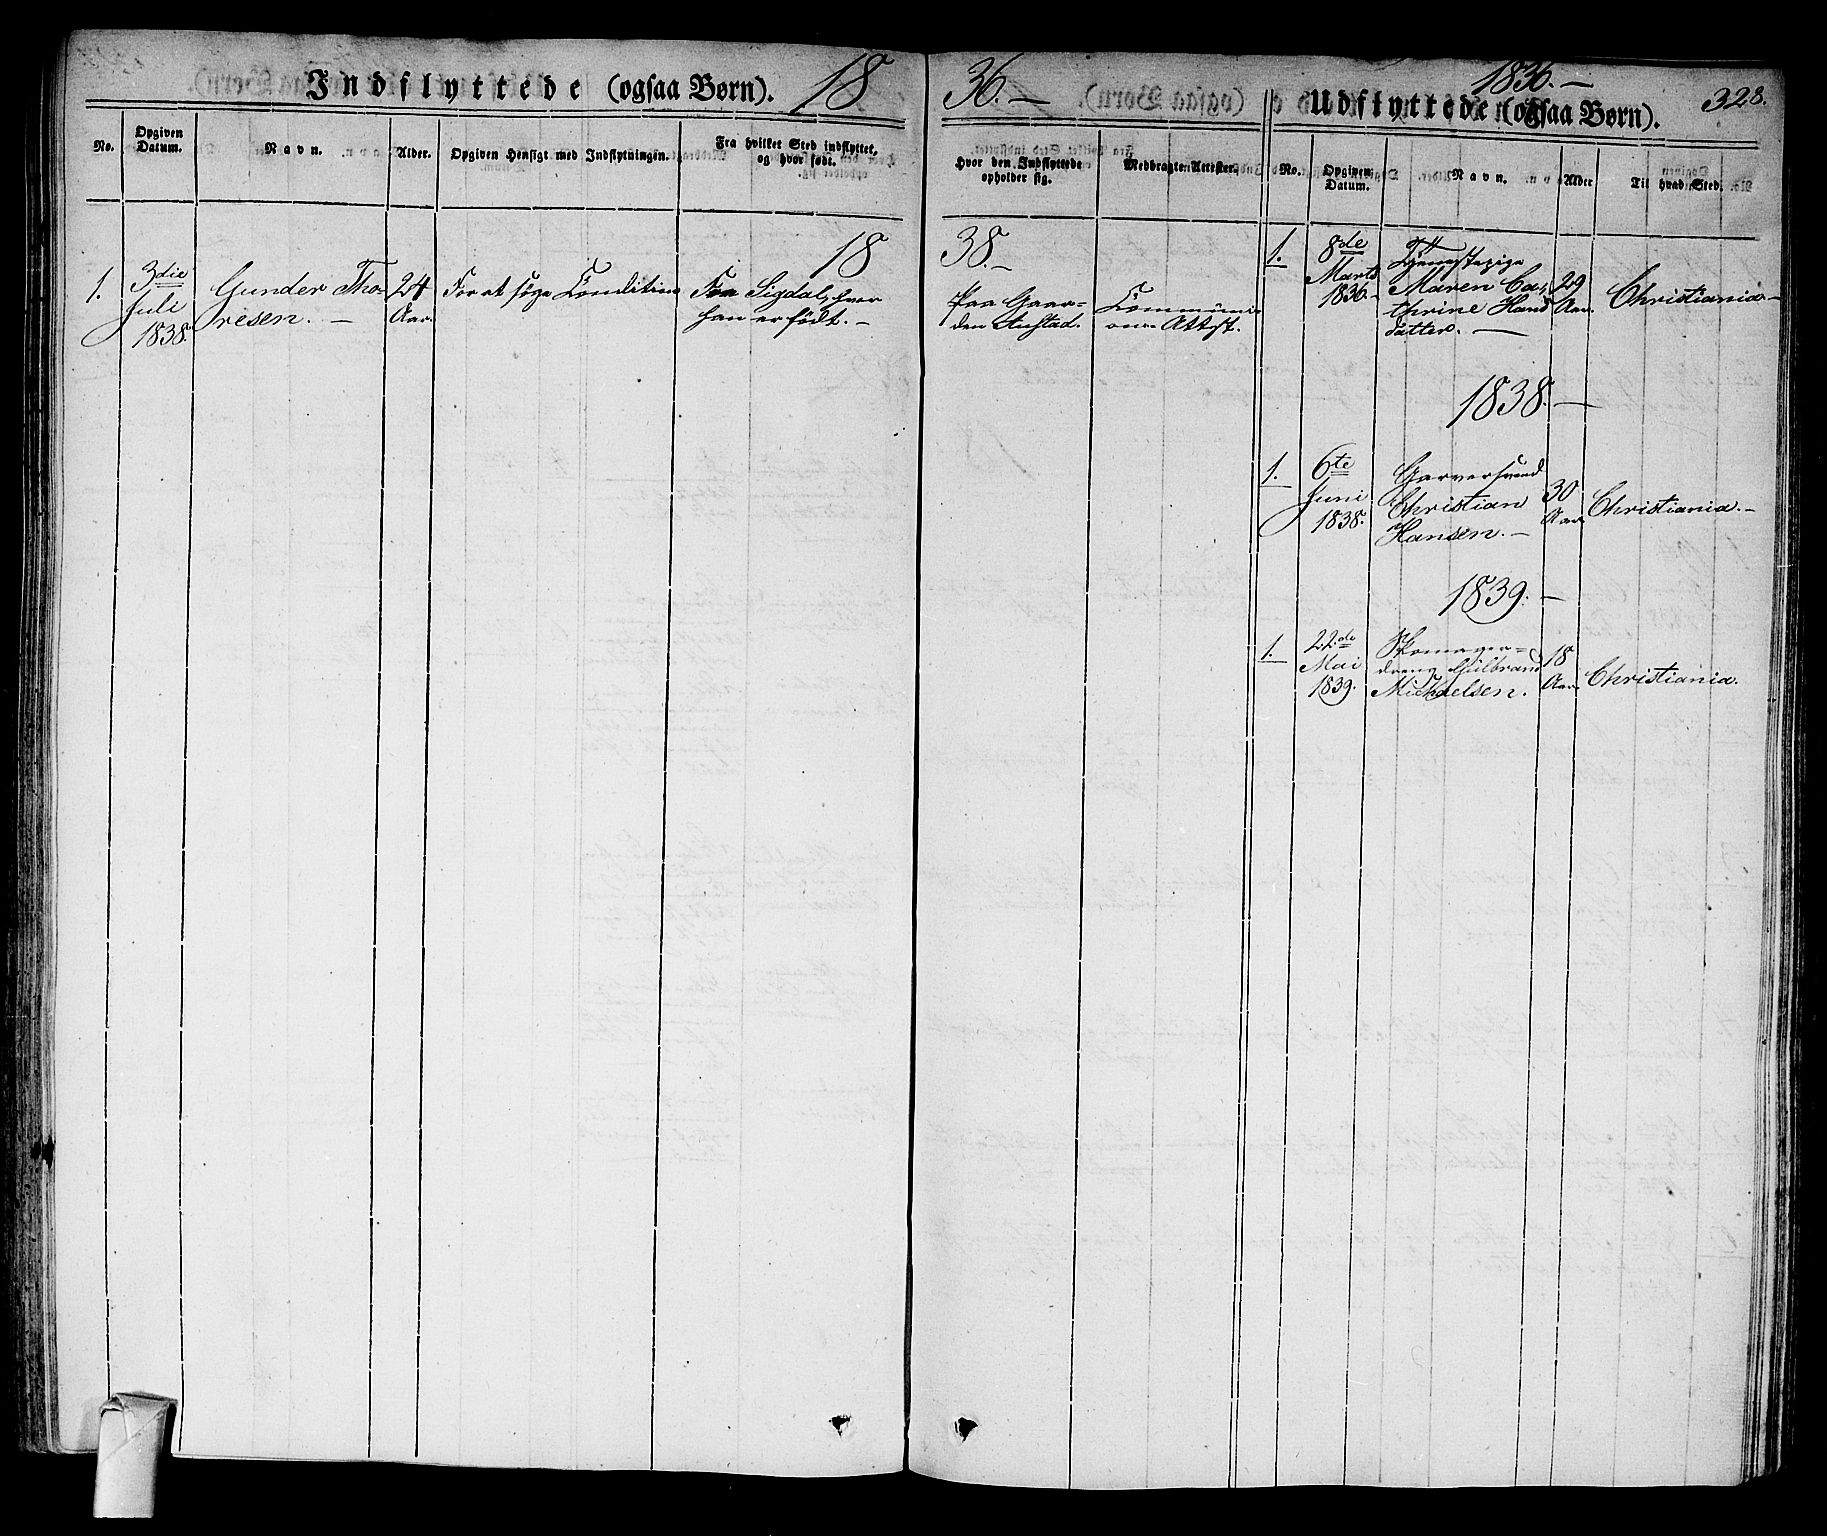 Indflyttede (ogsaa Børn). 18
No.
Opgiven Datum.
Navn.
Alder.
Opgiven Hensigt med Indflytningen.
Fra hvilket Sted indflyttet, og hvor født.
18
1.
3die
Juli
1838.
Gunder Tho-
resen. —
24
Aar.
For at söge Condition
Fra Sigdal, hvor
han er födt. —
36. —
Hvor den Indflyttede opholder sig.
Medbragte Attester.
38. —
Paa Gaar-
den
Communi-
ons Attest.
1836. —
Udflyttede (ogsaa Børn).
328.
No.
Opgiven Datum.
Navn.
Alder
Til hvad Sted.
1.
8de
Marts
1836. —
Tjenestepige
Maren Ca-
thrine Hans
datter. —
29
Aar.
Christiania —
1838. —
1.
6te
Juni
1838.
Garversvend
Christian
Hansen. —
30
Aar
Christiania. —
1839. —
1.
22de
Mai
1839.
Skomager-
dreng Gulbrand
Michaelsen.
18
Aar.
Christiania.